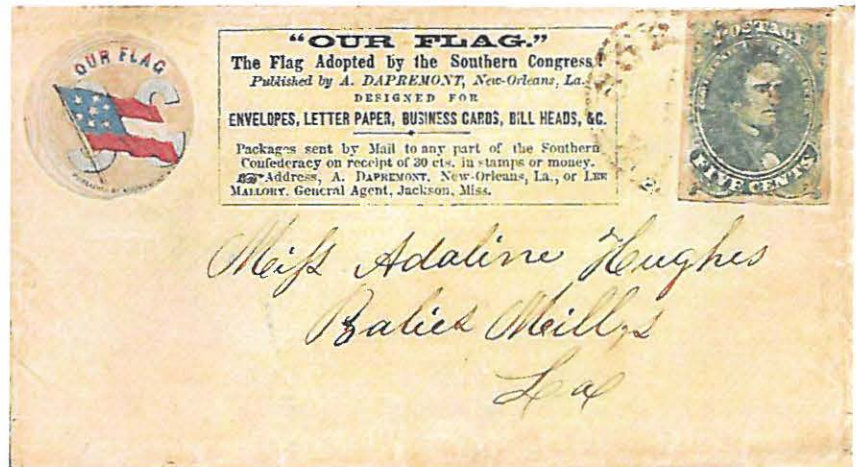 OUR FLAG
"OUR FLAG."
The Flag Adopted by the Southern Congress.
Published by A. DAPREMONT, New-Orleans, La.
DESIGNED FOR
ENVELOPES, LETTER PAPER, BUSINESS CARDS, BILL HEADS, &C.
Packages sent by Mail to any part of the Southern
Confederacy on receipt of 30 cts. in stamps or money.
Address, A. DAPREMONT, New-Orleans, La., or LEE
MALLORY, General Agent, Jackson, Miss.
POSTAGE
FIVE CENTS
Miſs Adaline Hughes
Balies Mills
La